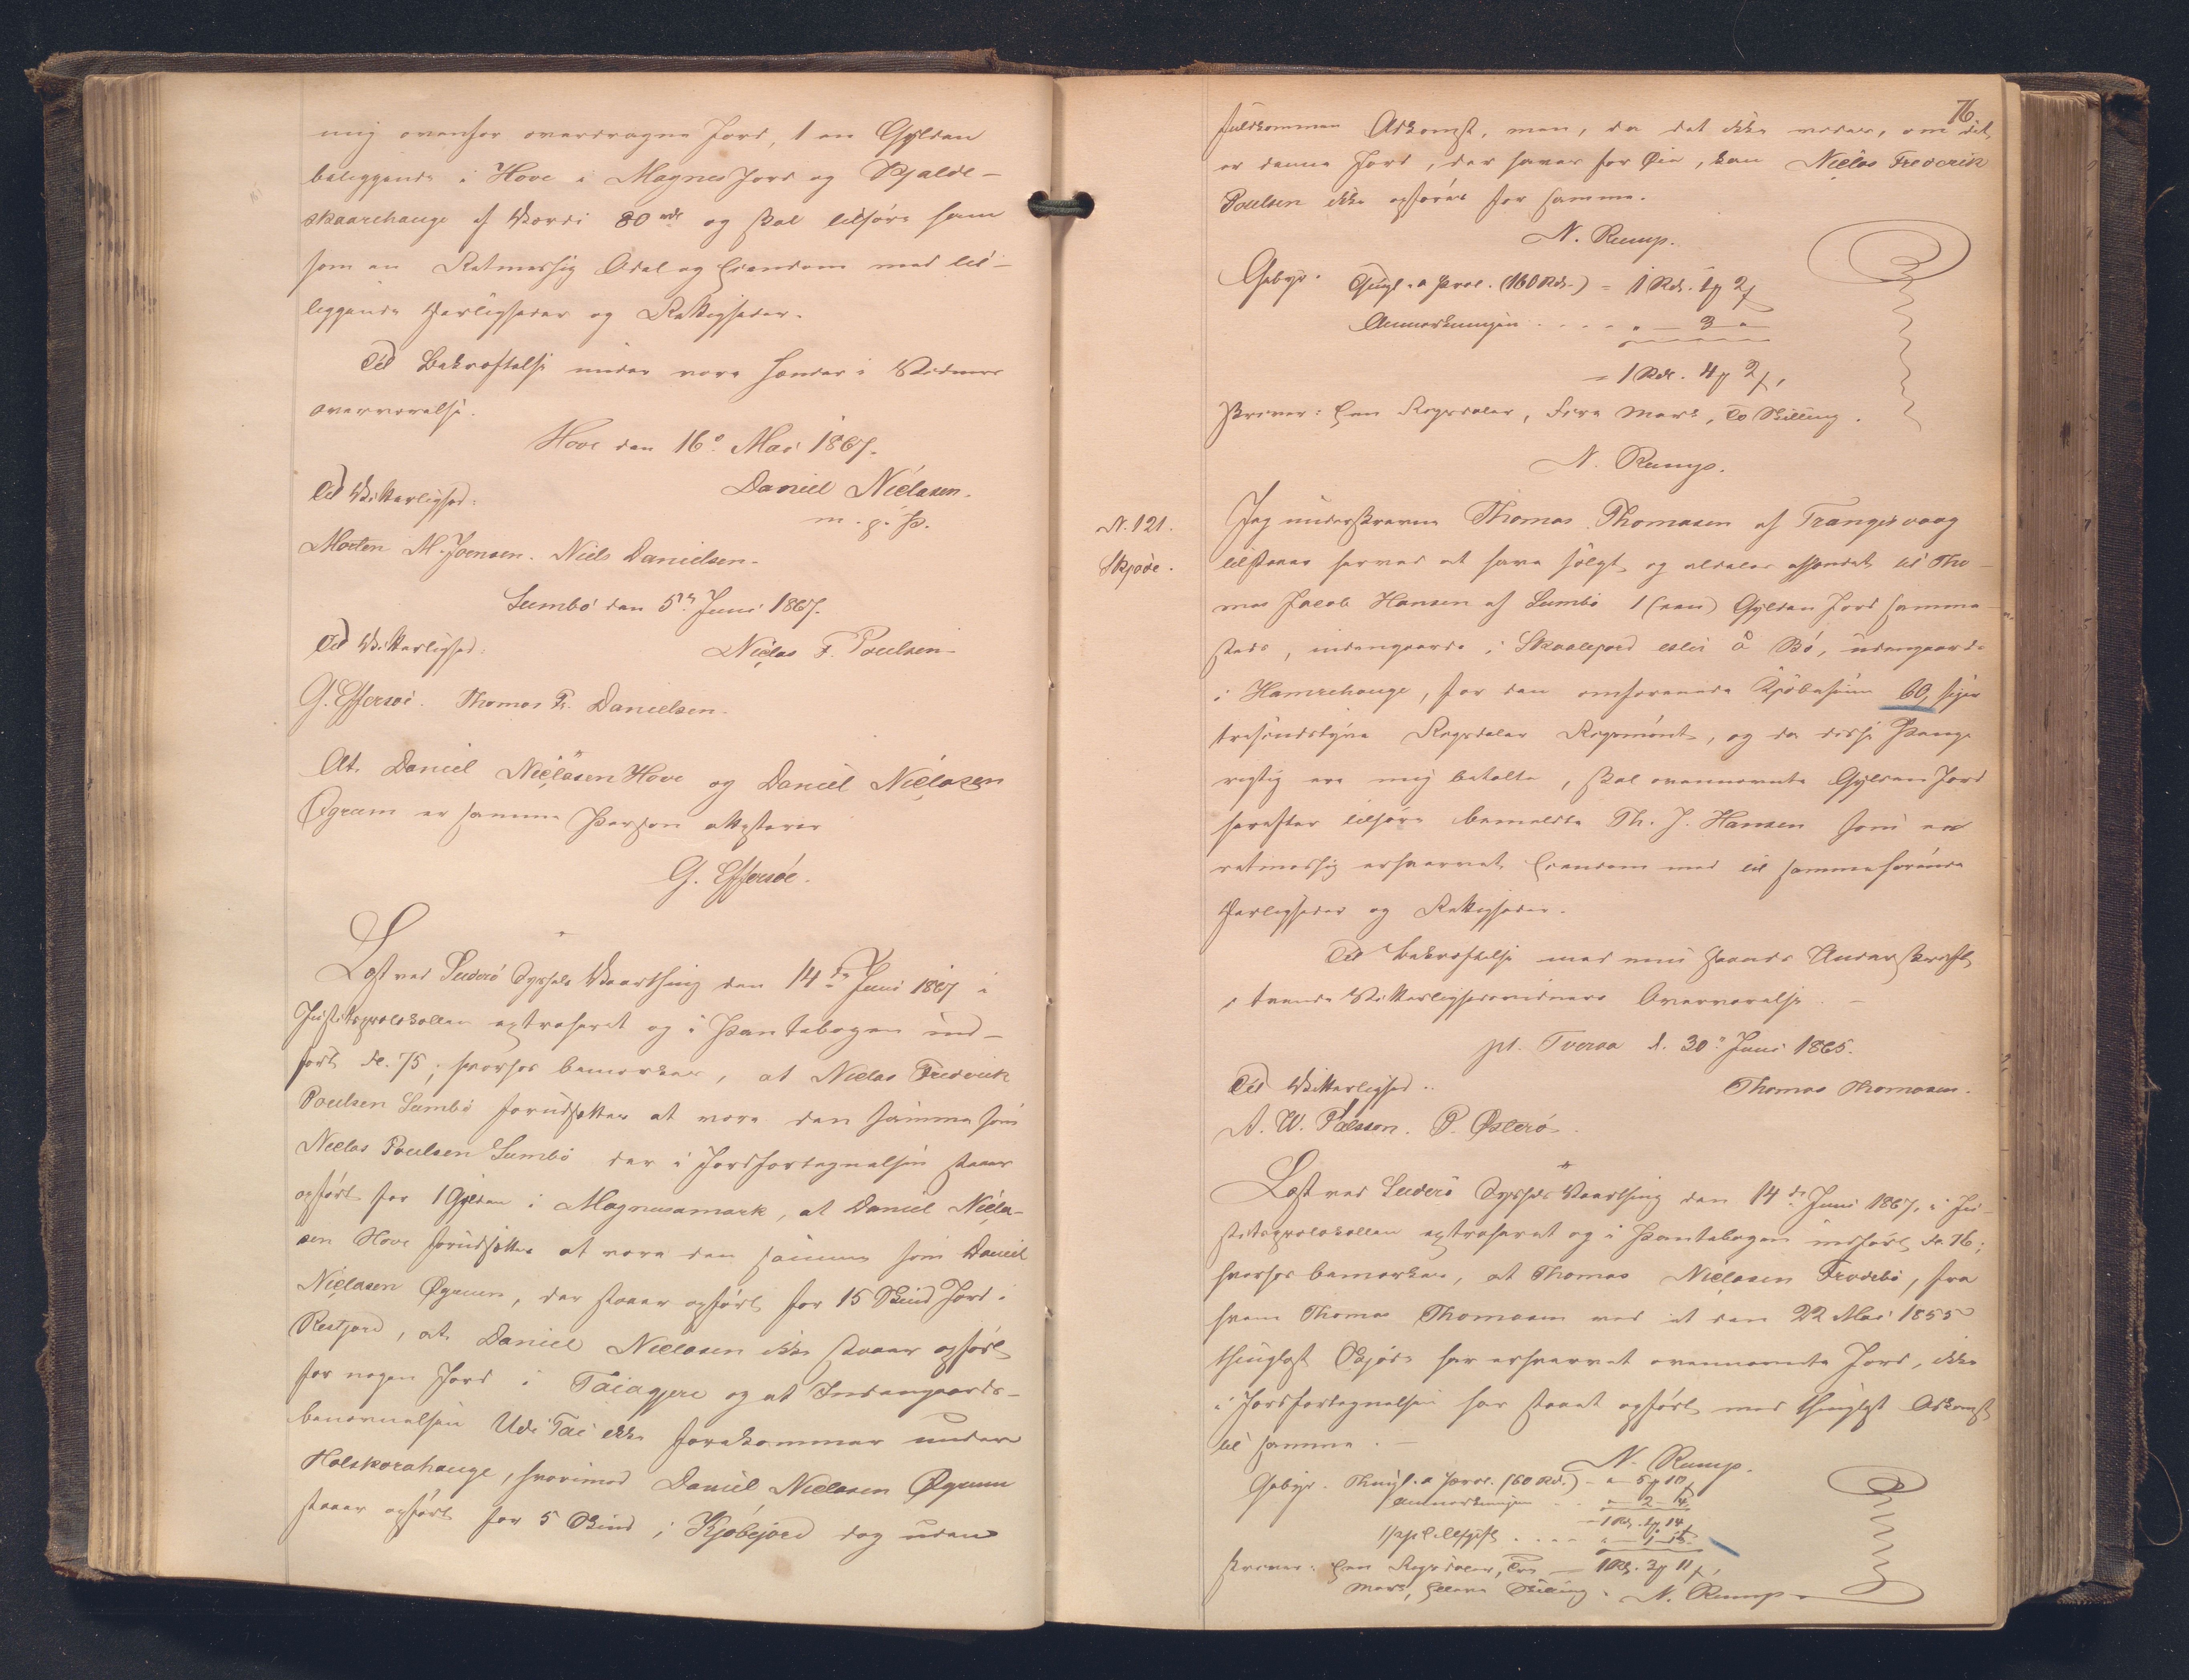 mig ovenfor overdragne Jord, 1 en Gylden
beliggende i Hove i Magnes Jord og Skjalde-
skaarehauge af Værdi 80 rdl og skal tilhøre ham
som en Retmæssig Odel og Eiendom med til-
liggende Herligheder og Rettigheder.
Til Bekræftelse under vore Hænder i Vidners
Overværelse.
Hove den 16de Mai 1867.
Til Vitterlighed:
Daniel Niclasen.
m. p. P.
Morten M. Joensen. Niels Danielsen.
Sumbö den 5te Juni 1867.
Til Vitterlighed:
Niclas F. Poulsen
G. Effersöe. Thomas Fr. Danielsen.
At Daniel Niclasen Hove og Daniel Niclasen
Øgrum er samme Person attesterer
G. Effersöe.
Læst ved Suderö Syssels Vaarthing den 14de Juni 1867 i
Justitsprotokollen extraheret og i Pantebogen ind-
ført Fo. 75; hvorhos bemærkes, at Niclas Frederik
Poulsen Sumbö forudsættes at være den samme som
Niclas Poulsen Sumbö der i Jordfortegnelsen staaer
opført for 1 Gylden i Magnusamark, at Daniel Nicla-
sen Hove forudsættes at være den samme som Daniel
Niclasen Øgrum, der staaer opført for 15 Skind Jord i
Restjord, at Daniel Niclasen ikke staaer opført
for nogen Jord i Taiagjere og at Indengaards-
benævnelsen Udi Tai ikke forekommer under
Holskorahauge, hvorimod Daniel Niclasen Øgrum
staaer opført for 5 Skind i Kjøbejord dog uden
76
fuldkommen Adkomst, men, da det ikke vides, om det
er denne Jord, der haves for Øie, kan Niclas Frederik
Poulsen ikke opføres for samme.
N. Rump.
Gebyr. Thingl. a Prot. (160 Rd.) = 1 Rdl. 1 ₰ 2 β
Anmærkningen . . . . " — 3 "
= 1 Rdl. 4 ₰ 2 β,
skriver: Een Rigsdaler, Fire Mark, To Skilling.
N. Rump.
N. 121.
Skjøde.
Jeg underskrevne Thomas Thomasen af Trangisvaag
tilstaaer herved at have solgt og aldeles afhændet til Tho-
mas Jacob Hansen af Sumbö 1 (een) Gylden Jord samme-
steds, indengaards i Skaalejord eller å Bö, udengaards
i Hamrehauge, for den omforenede Kjøbesum 60, siger
tresindstyve Rigsdaler Rigsmønt, og da disse Penge
rigtig ere mig betalte, skal ovennævnte Gylden Jord
herefter tilhøre bemeldte Th. J. Hansen som en
retmæssig erhvervet Eiendom med til samme hørende
Herligheder og Rettigheder.
Til Bekræftelse med min Haands Underskrift
i tvende Vitterlighedsvidners Overværelse.
pt. Tveraa d. 30te Juni 1865.
Til Vitterlighed:
Thomas Thomasen.
A. W. Pålsson. P. Østerö
Læst ved Suderö Syssels Vaarthing den 14de Juni 1867, i Ju-
stitsprotokollen extraheret og i Pantebogen indført Fo. 76;
hvorhos bemærkes, at Thomas Niclasen Frodebö, fra
hvem Thomas Thomasen ved et den 22 Mai 1855
thinglæst Skjøde har erhvervet ovennævnte Jord, ikke
i Jordfortegnelsen har staaet opført med thinglæst Adkomst
til samme.
N. Rump.
Gebyr. Thingl. a Prot. (60 Rd.) — " 5 ₰ 10 β
Anmærkningen . . " 2 - 4.
— 1 Rd. 2 ₰ 14
. . . . " — 1 - 13
skriver: Een Rigsdaler, Tre — 1 Rd. 3 ₰ 11 β,
Mark, Elleve Skilling. N. Rump